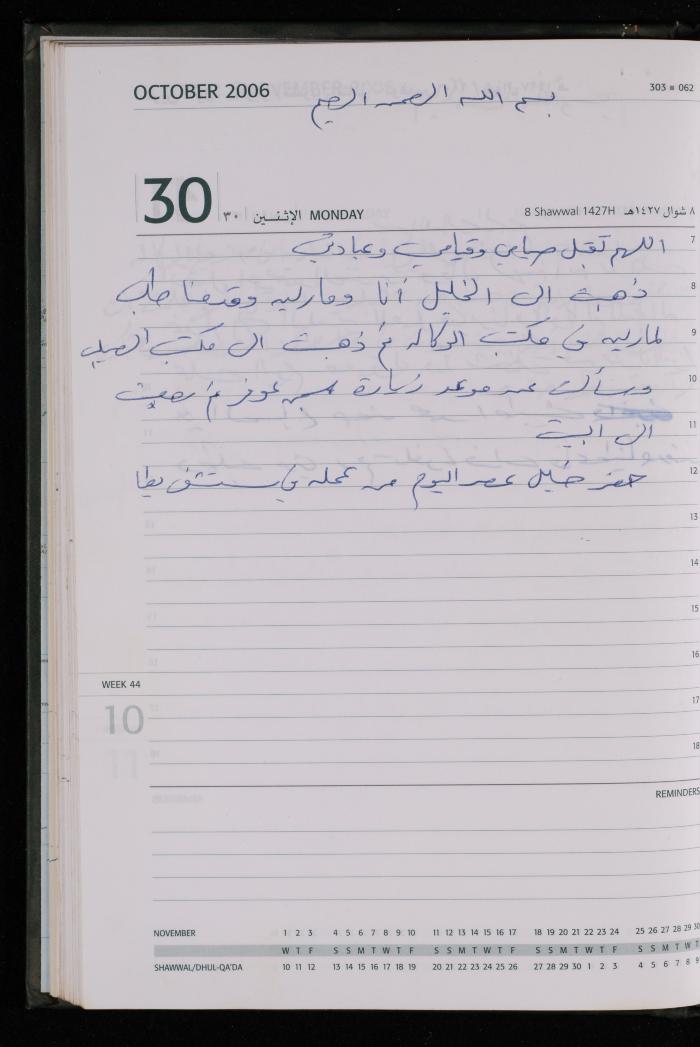 OCTOBER 2006
بسم الله الرحمن الرحيم
303 ■ 062
30 ٣٠ الإثنين MONDAY
8 Shawwal 1427H ٨ شوال ١٤٢٧هـ
7 اللهم تقبل صيامي وقيامي وعبادتي
8 ذهبت الى الخليل أنا وماريه وقدمنا طلب
9 لماريه في مكتب الوكاله ثم ذهبت الى مكتب الصليب
10 وسألت عن موعد زيارة سجن عوفر ثم رجعت
11 الى البيت
12 حضر خليل عصر اليوم من عمله في مستشفى يطا
13
14
15
16
WEEK 44
17
10
18
11
REMINDERS
NOVEMBER 1 2 3 4 5 6 7 8 9 10 11 12 13 14 15 16 17 18 19 20 21 22 23 24 25 26 27 28 29 30
W T F S S M T W T F S S M T W T F S S M T W T F S S M T W T
SHAWWAL/DHUL-QA'DA 10 11 12 13 14 15 16 17 18 19 20 21 22 23 24 25 26 27 28 29 30 1 2 3 4 5 6 7 8 9